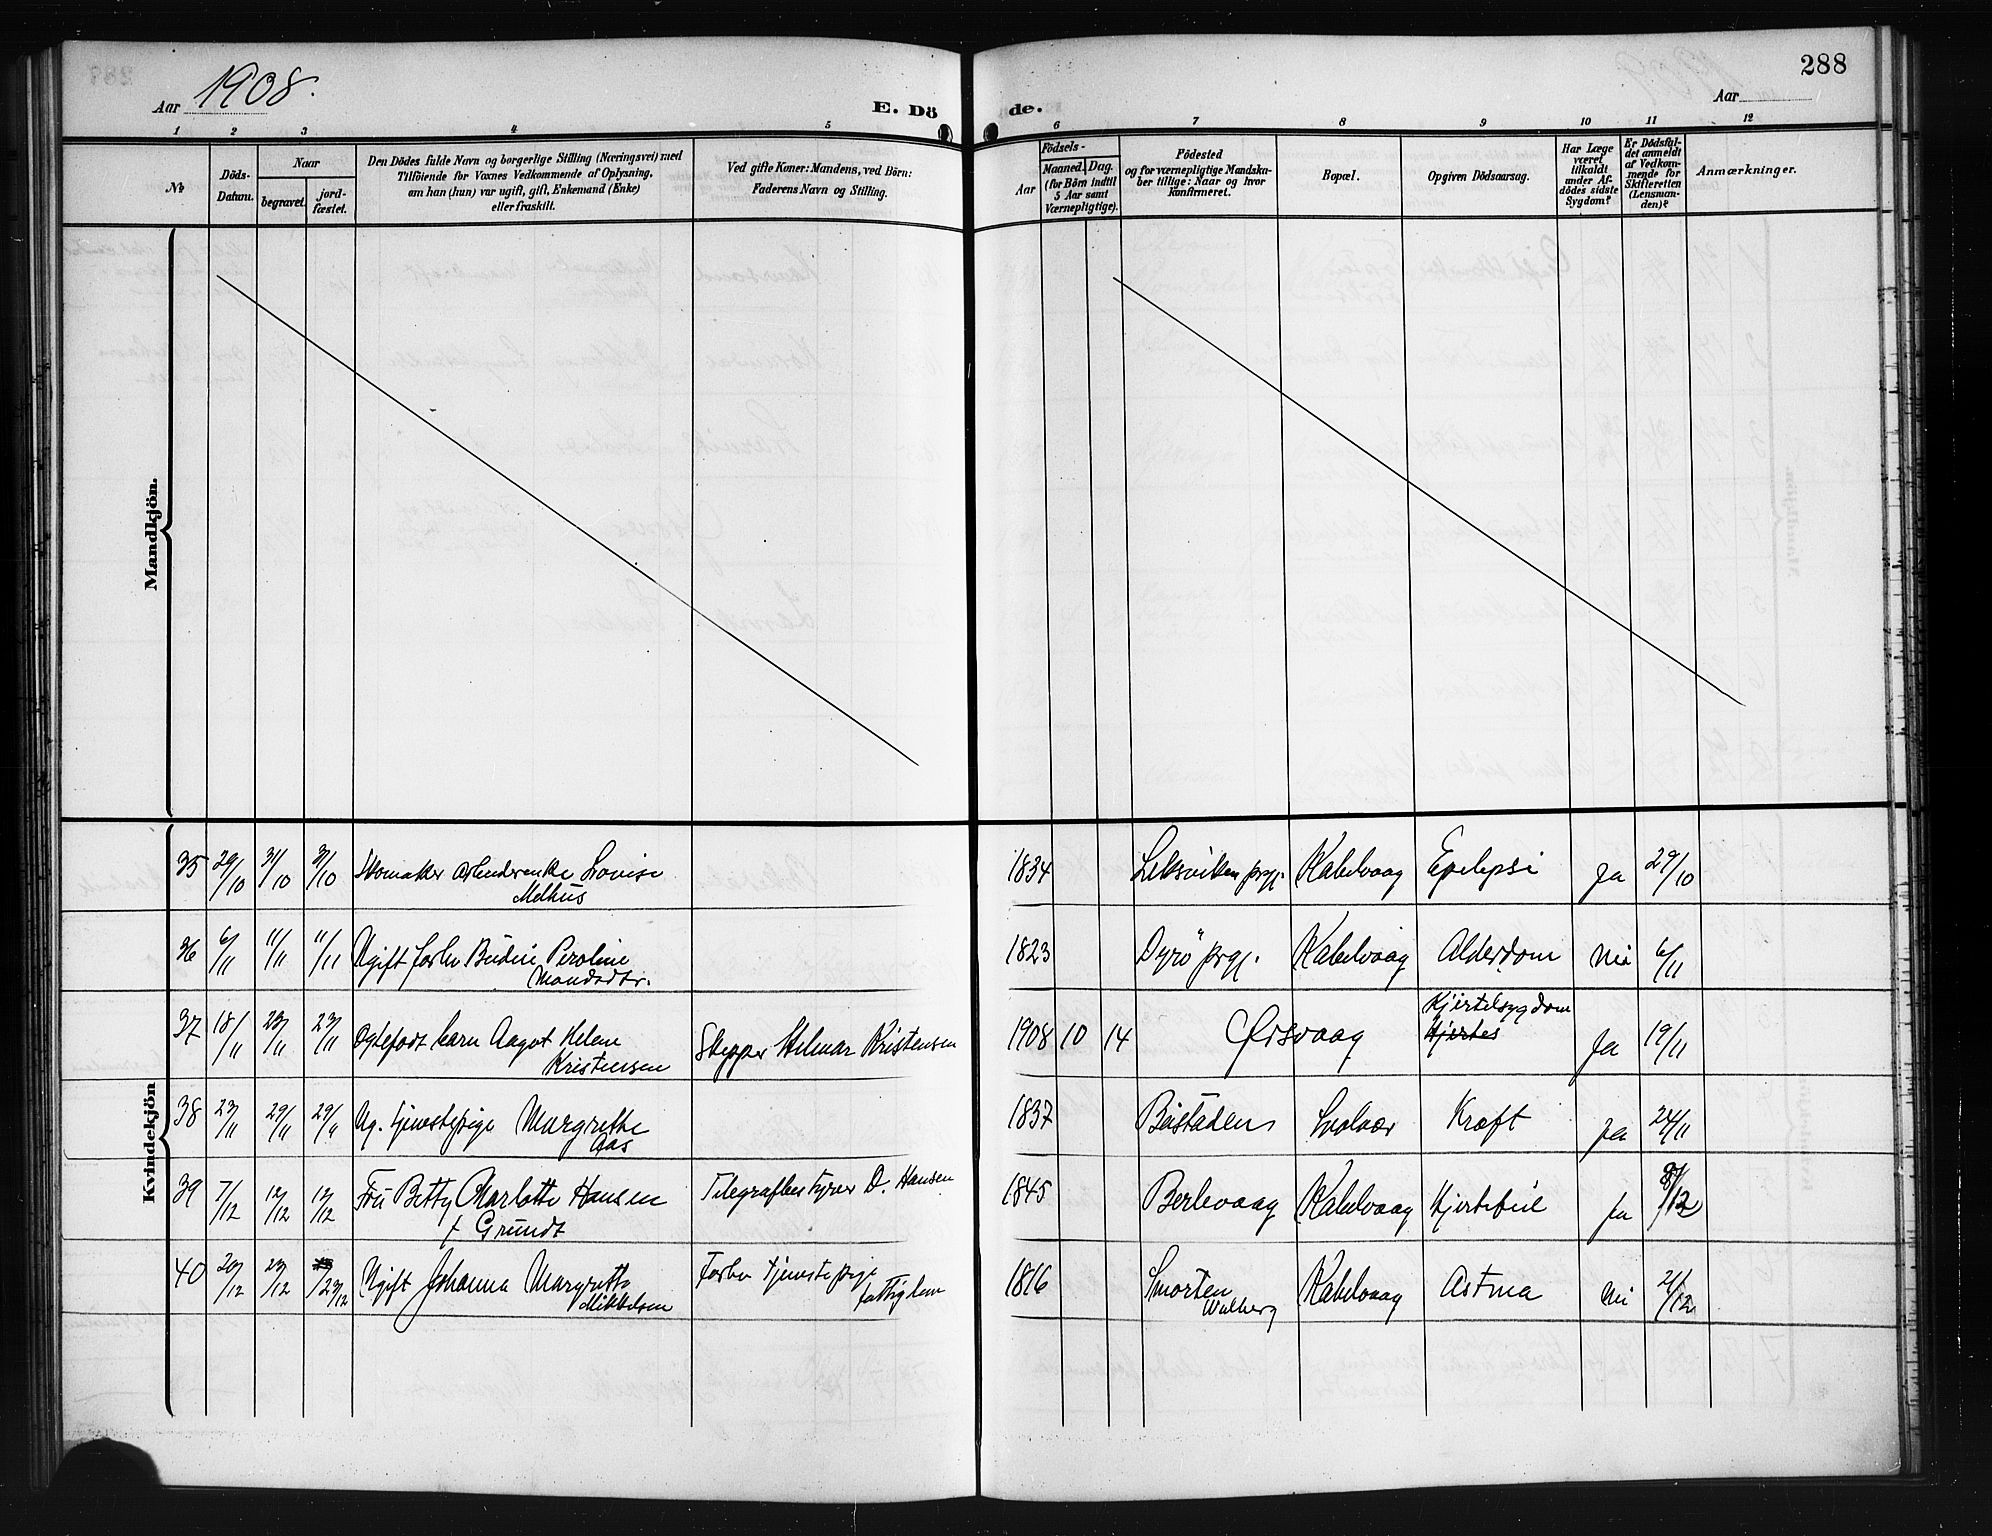 1908.
Aar
E. Dö
de.
288
Aar
1 2 3 4 5 6 7 8 9 10 11 12
No
Döds-
Datum.
Naar
begravet.
jord-
fæstet.
Den Dödes fulde Navn og borgerlige Stilling (Næringsvei) med
Tilföiende for Voxnes Vedkommende af Oplysning,
om han (hun) var ugift, gift, Enkemand (Enke)
eller fraskilt.
Ved gifte Koner: Mandens, ved Börn:
Faderens Navn og Stilling.
Födsels-
Aar
Maaned. Dag.
(for Börn indtil
5 Aar samt
Værnepligtige).
Födested
og for værnepligtige Mandska-
ber tillige: Naar og hvor
konfirmeret.
Bopæl.
Opgiven Dödsaarsag.
Har Læge
været
tilkaldt
under Af-
dödes sidste
Sygdom?
Er Dödsfal-
det anmeldt
af Vedkom-
mende for
Skifteretten
(Lensman-
den)?
Anmærkninger.
Mandkjön.
Kvindekjön
35 29/10 31/10 31/10 Skomaker Lovise
Melhus
1834 Leksviken prgj. Kabelvaag Epelepsi ja 29/10
36 6/11 11/11 11/11 Ugift Peroline
1823 Dyrö prgj. Kabelvaag Alderdom Nei 6/11
37 18/11 23/11 23/11 Ægtefødt barn Aagot Helene
Kristensen
Skipper Hilmar Kristensen 1908 10 14 Ørsvaag Kjertelsygdom
Hjertes
Ja 19/11
38 23/11 29/11 29/11 Ug. tjenestepige Margrethe
Aas
1837 Svolvær Kræft ja 24/11
39 7/12 12/12 12/12 Frü Betty Charlotte Hansen
f Gründt
Telegrafbestyrer D. Hansen 1845 Berlevaag Kabelvaag Hjertefeil ja /12
40 20/12 23/12 23/12 Ugift Johanna Margrethe
Mikkelsen
tjenestepige
fattiglem
1816 Smorten
Kabelvaag Astma nei 21/12